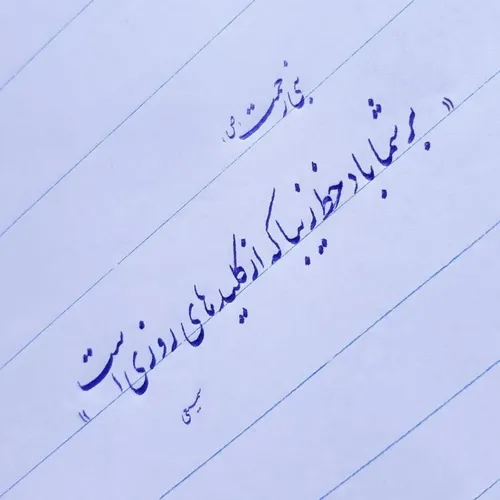 نبی رحمت (ص)
« بر شما باد خط زیبا که از کلیدهای روزی است »
سمیعی